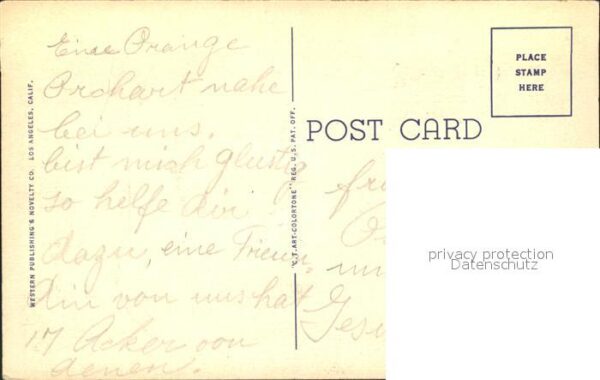 Eine Orange
Orchart nahe
bei uns.
bist mich glustig
so helfe dir
dazu, eine Freun-
din von uns hat
17 Acker von
denen.
WESTERN PUBLISHING & NOVELTY CO. LOS ANGELES, CALIF.
"C.T. ART-COLORTONE" REG. U.S. PAT. OFF.
POST CARD
PLACE
STAMP
HERE
privacy protection
Datenschutz